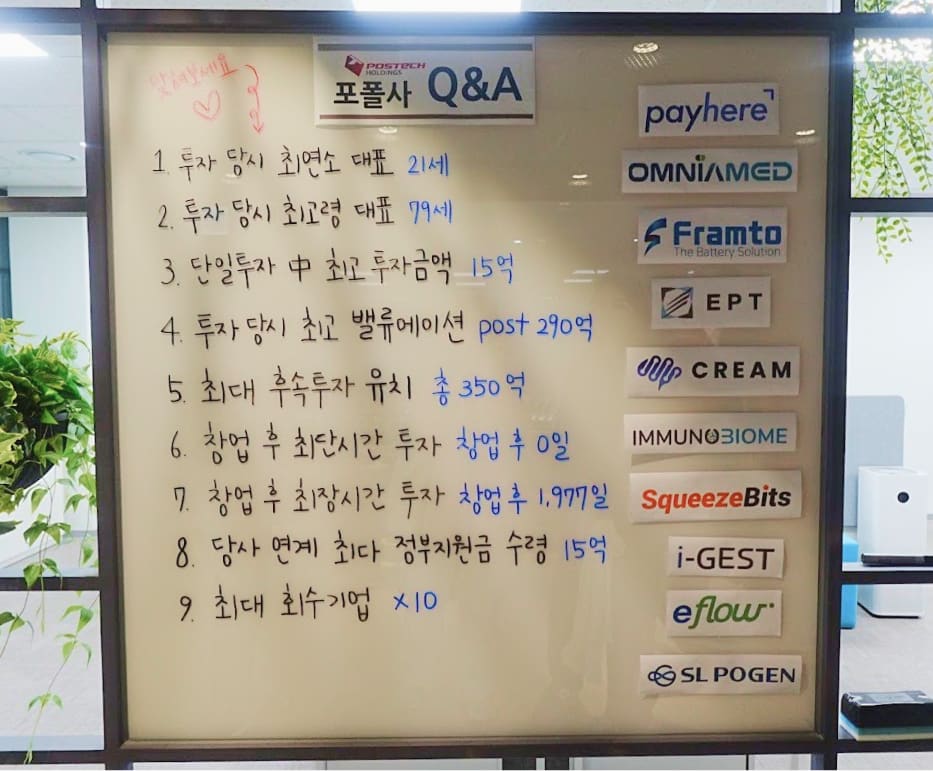 맞춰보세요
POSTECH
HOLDINGS
포폴사 Q&A
1. 투자 당시 최연소 대표 21세
2. 투자 당시 최고령 대표 79세
3. 단일투자 中 최고 투자금액 15억
4. 투자 당시 최고 밸류에이션 post 290억
5. 최대 후속투자 유치 총 350억
6. 창업 후 최단시간 투자 창업 후 0일
7. 창업 후 최장시간 투자 창업 후 1,977일
8. 당사 연계 최다 정부지원금 수령 15억
9. 최대 회수기업 x10
payhere
OMNIAMED
Framto
The Battery Solution
EPT
CREAM
IMMUNOBIOME
SqueezeBits
i-GEST
eflow
SL POGEN